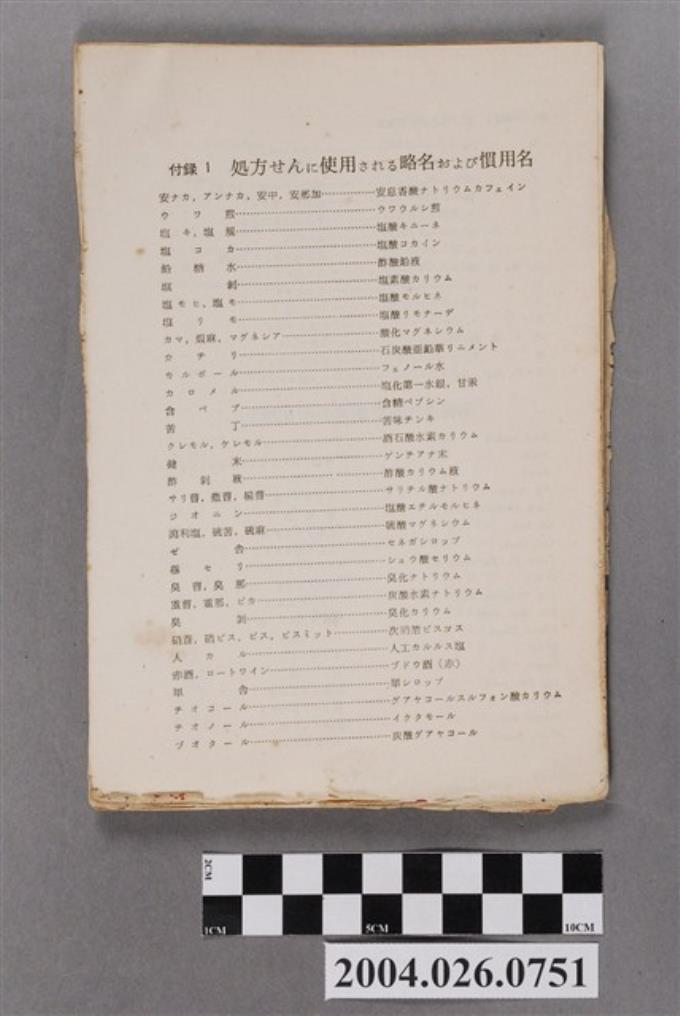 付録 1 処方せんに使用される略名および慣用名
安ナカ, アンナカ, 安中, 安那加…………安息香酸ナトリウムカフェイン
ウワ煎…………ウワウルシ煎
塩キ, 塩規…………塩酸キニーネ
塩コカ…………塩酸コカイン
鉛糖水…………酢酸鉛液
塩剥…………塩素酸カリウム
塩モヒ, 塩モ…………塩酸モルヒネ
塩リモ…………塩酸リモナーデ
カマ, 煆麻, マグネシア…………酸化マグネシウム
カチリ…………石炭酸亜鉛華リニメント
カルボール…………フェノール水
カロメル…………塩化第一水銀, 甘汞
含ペプ…………含糖ペプシン
苦丁…………苦味チンキ
クレモル, ケレモル…………酒石酸水素カリウム
健末…………ゲンチアナ末
酢剥液…………酢酸カリウム液
サリ曹, 撒曹, 楊曹…………サリチル酸ナトリウム
ジオニン…………塩酸エチルモルヒネ
瀉利塩, 硫苦, 硫麻…………硫酸マグネシウム
ゼ舎…………セネガシロップ
蓚セリ…………シュウ酸セリウム
臭曹, 臭那…………臭化ナトリウム
重曹, 重那, ビカ…………炭酸水素ナトリウム
臭剥…………臭化カリウム
硝蒼, 硝ビス, ビス, ビスミット…………次硝酸ビスマス
人カル…………人工カルルス塩
赤酒, ロートワイン…………ブドウ酒（赤）
単舎…………単シロップ
チオコール…………グアヤコールスルフォン酸カリウム
チオノール…………イクタモール
ヅオタール…………炭酸グアヤコール
2CM
1CM 5CM 10CM
2004.026.0751